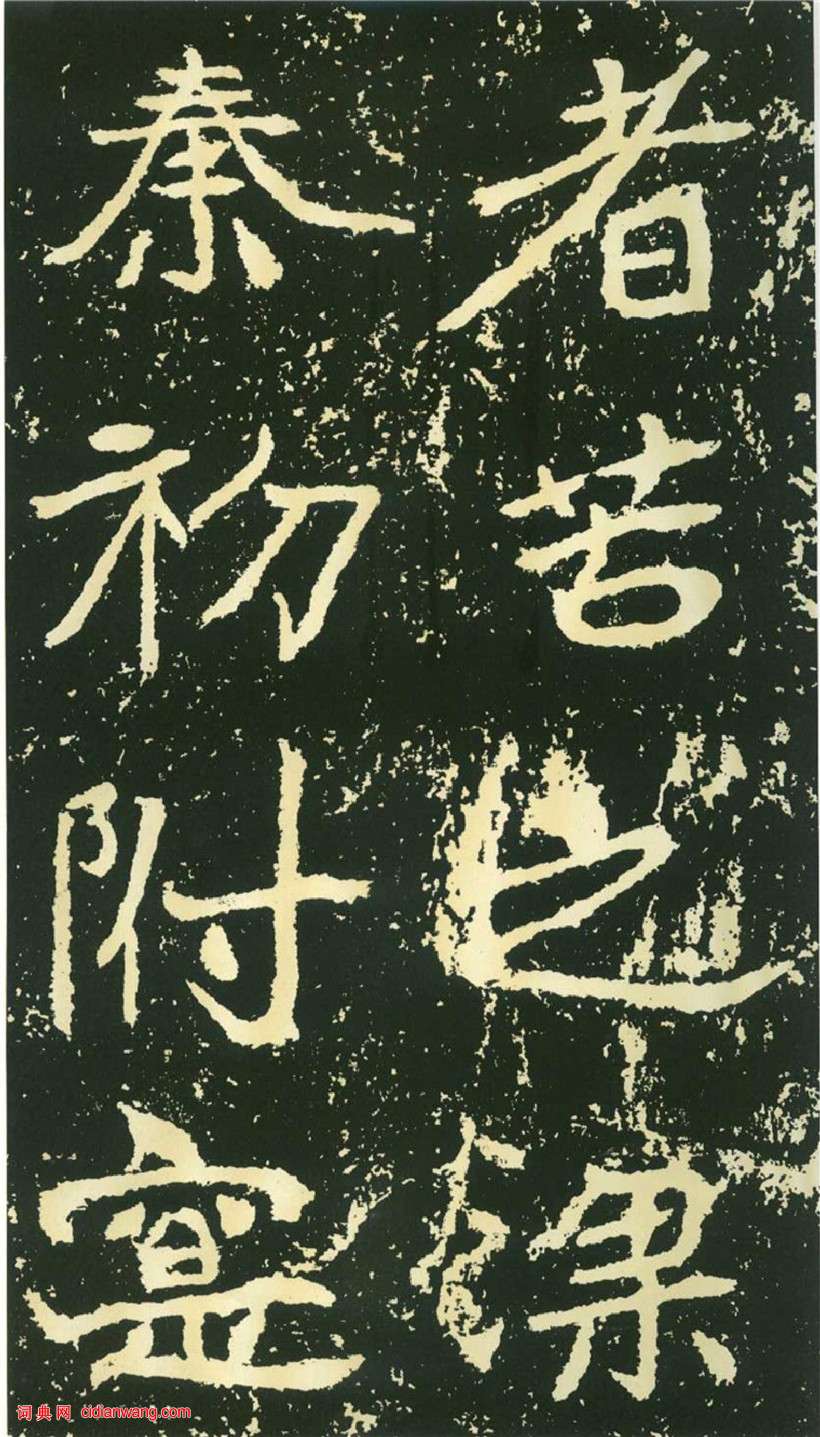 者苦之梁
秦初附寔
词典网 cidianwang.com